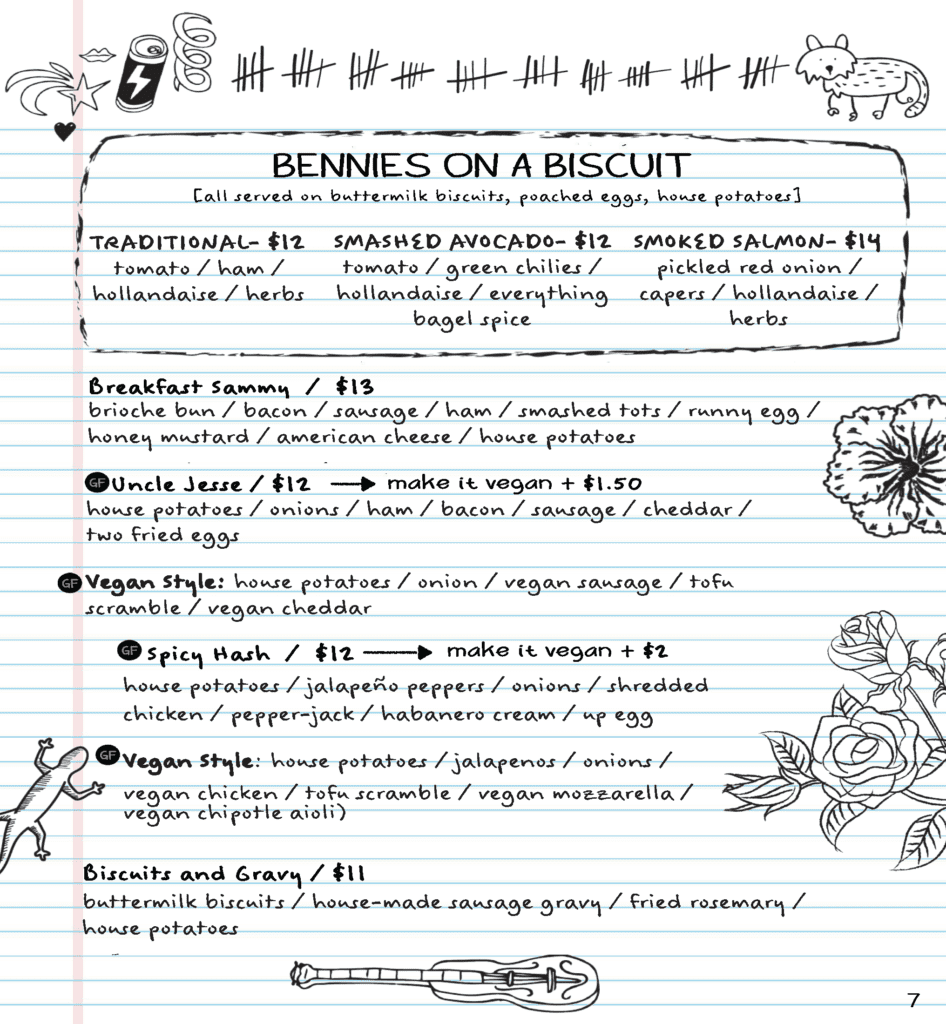 BENNIES ON A BISCUIT
[all served on buttermilk biscuits, poached eggs, house potatoes]
TRADITIONAL- $12
tomato / ham /
hollandaise / herbs
SMASHED AVOCADO- $12
tomato / green chilies /
hollandaise / everything
bagel spice
SMOKED SALMON- $14
pickled red onion /
capers / hollandaise /
herbs
Breakfast Sammy / $13
brioche bun / bacon / sausage / ham / smashed tots / runny egg /
honey mustard / american cheese / house potatoes
GF Uncle Jesse / $12 → make it vegan + $1.50
house potatoes / onions / ham / bacon / sausage / cheddar /
two fried eggs
GF Vegan Style: house potatoes / onion / vegan sausage / tofu
scramble / vegan cheddar
GF Spicy Hash / $12 → make it vegan + $2
house potatoes / jalapeño peppers / onions / shredded
chicken / pepper-jack / habanero cream / up egg
GF Vegan Style: house potatoes / jalapenos / onions /
vegan chicken / tofu scramble / vegan mozzarella /
vegan chipotle aioli)
Biscuits and Gravy / $11
buttermilk biscuits / house-made sausage gravy / fried rosemary /
house potatoes
7